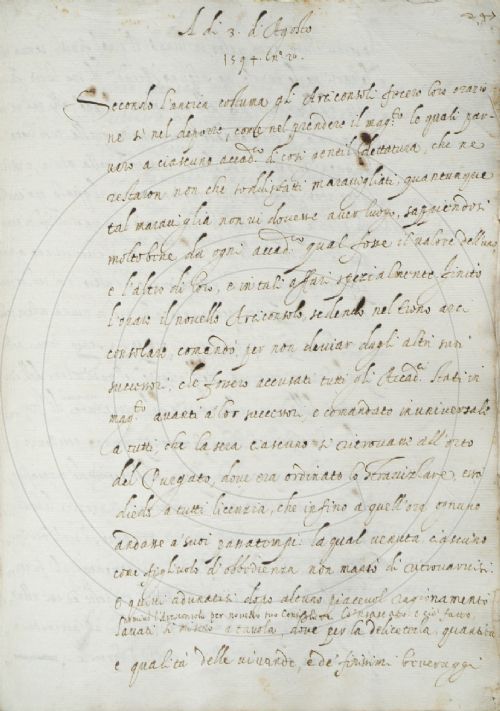 A di 3. d'Agosto
1594.
Secondo l'antica costuma gl'Arciconsoli fecero loro orazio
ne sì nel deporre, come nel prendere il mag.to le quali par-
vero a ciascuno accad.co di così gentil dettatura, che ne
restaron non che sodisfatti maravigliati, quantunque
tal maraviglia non vi dovesse aver luogo, sappiendosi
molto bene da ogni accad.co qual fosse il valore dell'uno
e l'altro di loro, e in tali affari spezialmente. finito
l'orare il novello Arciconsolo, sedendo nel trono arci
consolare, comandò per non deviar dagli altri suoi
successori che fossero accusati tutti gli Accad.ci stati in
mag.to avanti a lor successor, e comandato in universale
a tutti, che la sera ciascuno si ritrovasse all'orto
del Purgato, dove era ordinato lo stravizzare, esso
diede a tutti licenzia, che infino a quell'ora ognuno
andasse a suoi passatempi: la qual venuta ciascuno
come figliuolo d'obbedienza non mancò di ritrovarvisi
e quivi adunatisi dopo alcuno piacevol ragionamento
l'Arciconsolo per novello suo
lavati si misero a tavola, dove per la delicatezza, quantità
e qualità delle vivande, e de' finissimi beveraggi